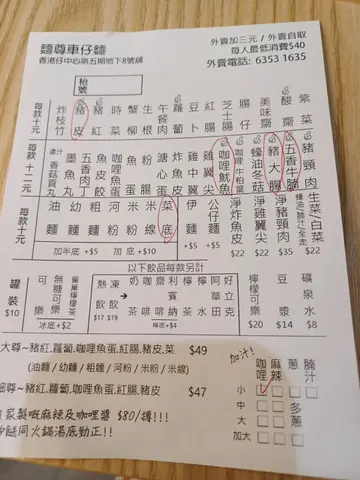 麵尊車仔麵
香港仔中心第五期地下8號舖
外賣加三元 / 外賣自取
每人最低消費$40
外賣電話: 6353 1635
枱號
每款十元
炸枝竹
豬皮
豬紅
時菜
蟹柳
生根
午餐肉
蘿蔔
豆卜
紅腸
芝士腸
腸仔
美味齋
酸齋
紫菜
每款十二元
墨魚丸
五香肉丁
魚皮餃
咖哩魚蛋
魚蛋
粉腸
溏心蛋
炸魚皮
雞中翼
雞翼尖
咖哩魷魚
咖哩牛柏葉
蠔油冬菇
豬大腸
五香牛腩
豬頸肉
每款十元
油麵
幼麵
粗麵
河粉
米粉
米線
菜底
伊麵 +$5
公仔麵 +$5
淨炸魚皮 $22
淨雞翼尖 $22
淨豬頸肉 $35
生菜/白菜 $22
加半底 +$5
加底 +$10
以下飲品每款另計
罐裝 $10
可樂
無糖可樂
冰底+$2
熱飲 $17
凍飲 $19
奶茶
咖啡
利賓納
檸茶
檸啡
華田
好立克
檸底+$4
檸檬可樂 $20
豆漿 $14
礦泉水 $8
大尊~豬紅,蘿蔔,咖哩魚蛋,紅腸,豬皮,菜 $49
(油麵 / 幼麵 / 粗麵 / 河粉 / 米粉 / 米線)
豬紅,蘿蔔,咖哩魚蛋,紅腸,豬皮 $47
家製嘅麻辣及咖哩醬 $80/樽!!!
同火鍋湯底勁正!!
加汁!
咖哩
麻辣
蔥
腩汁
小
中
大
加大
多蔥